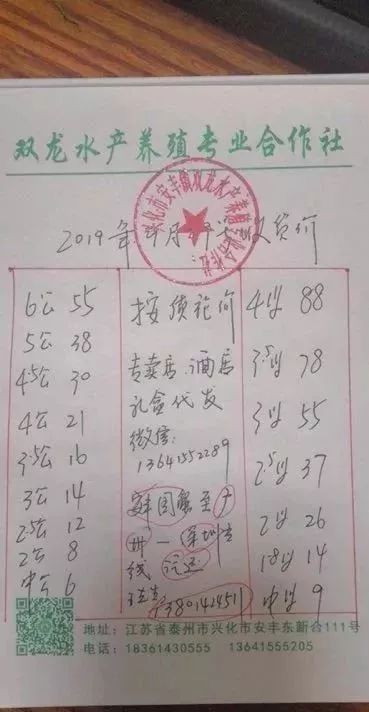 双龙水产养殖专业合作社
兴化市安丰镇双龙水产养殖专业合作社
2019年 月 收货价
6公 55
5公 38
4.5公 30
4公 21
3.5公 16
3公 14
2.5公 12
2公 8
中公 6
按级论价
专卖店.酒店
礼盒代发
微信:
13641552289
安丰国蟹至广
州一深圳专
线
王先生
4母 88
3.5母 78
3母 55
2.5母 37
2母 26
18母 14
中母 9
地址:江苏省泰州市兴化市安丰东新合111号
电话:18361430555 13641555205